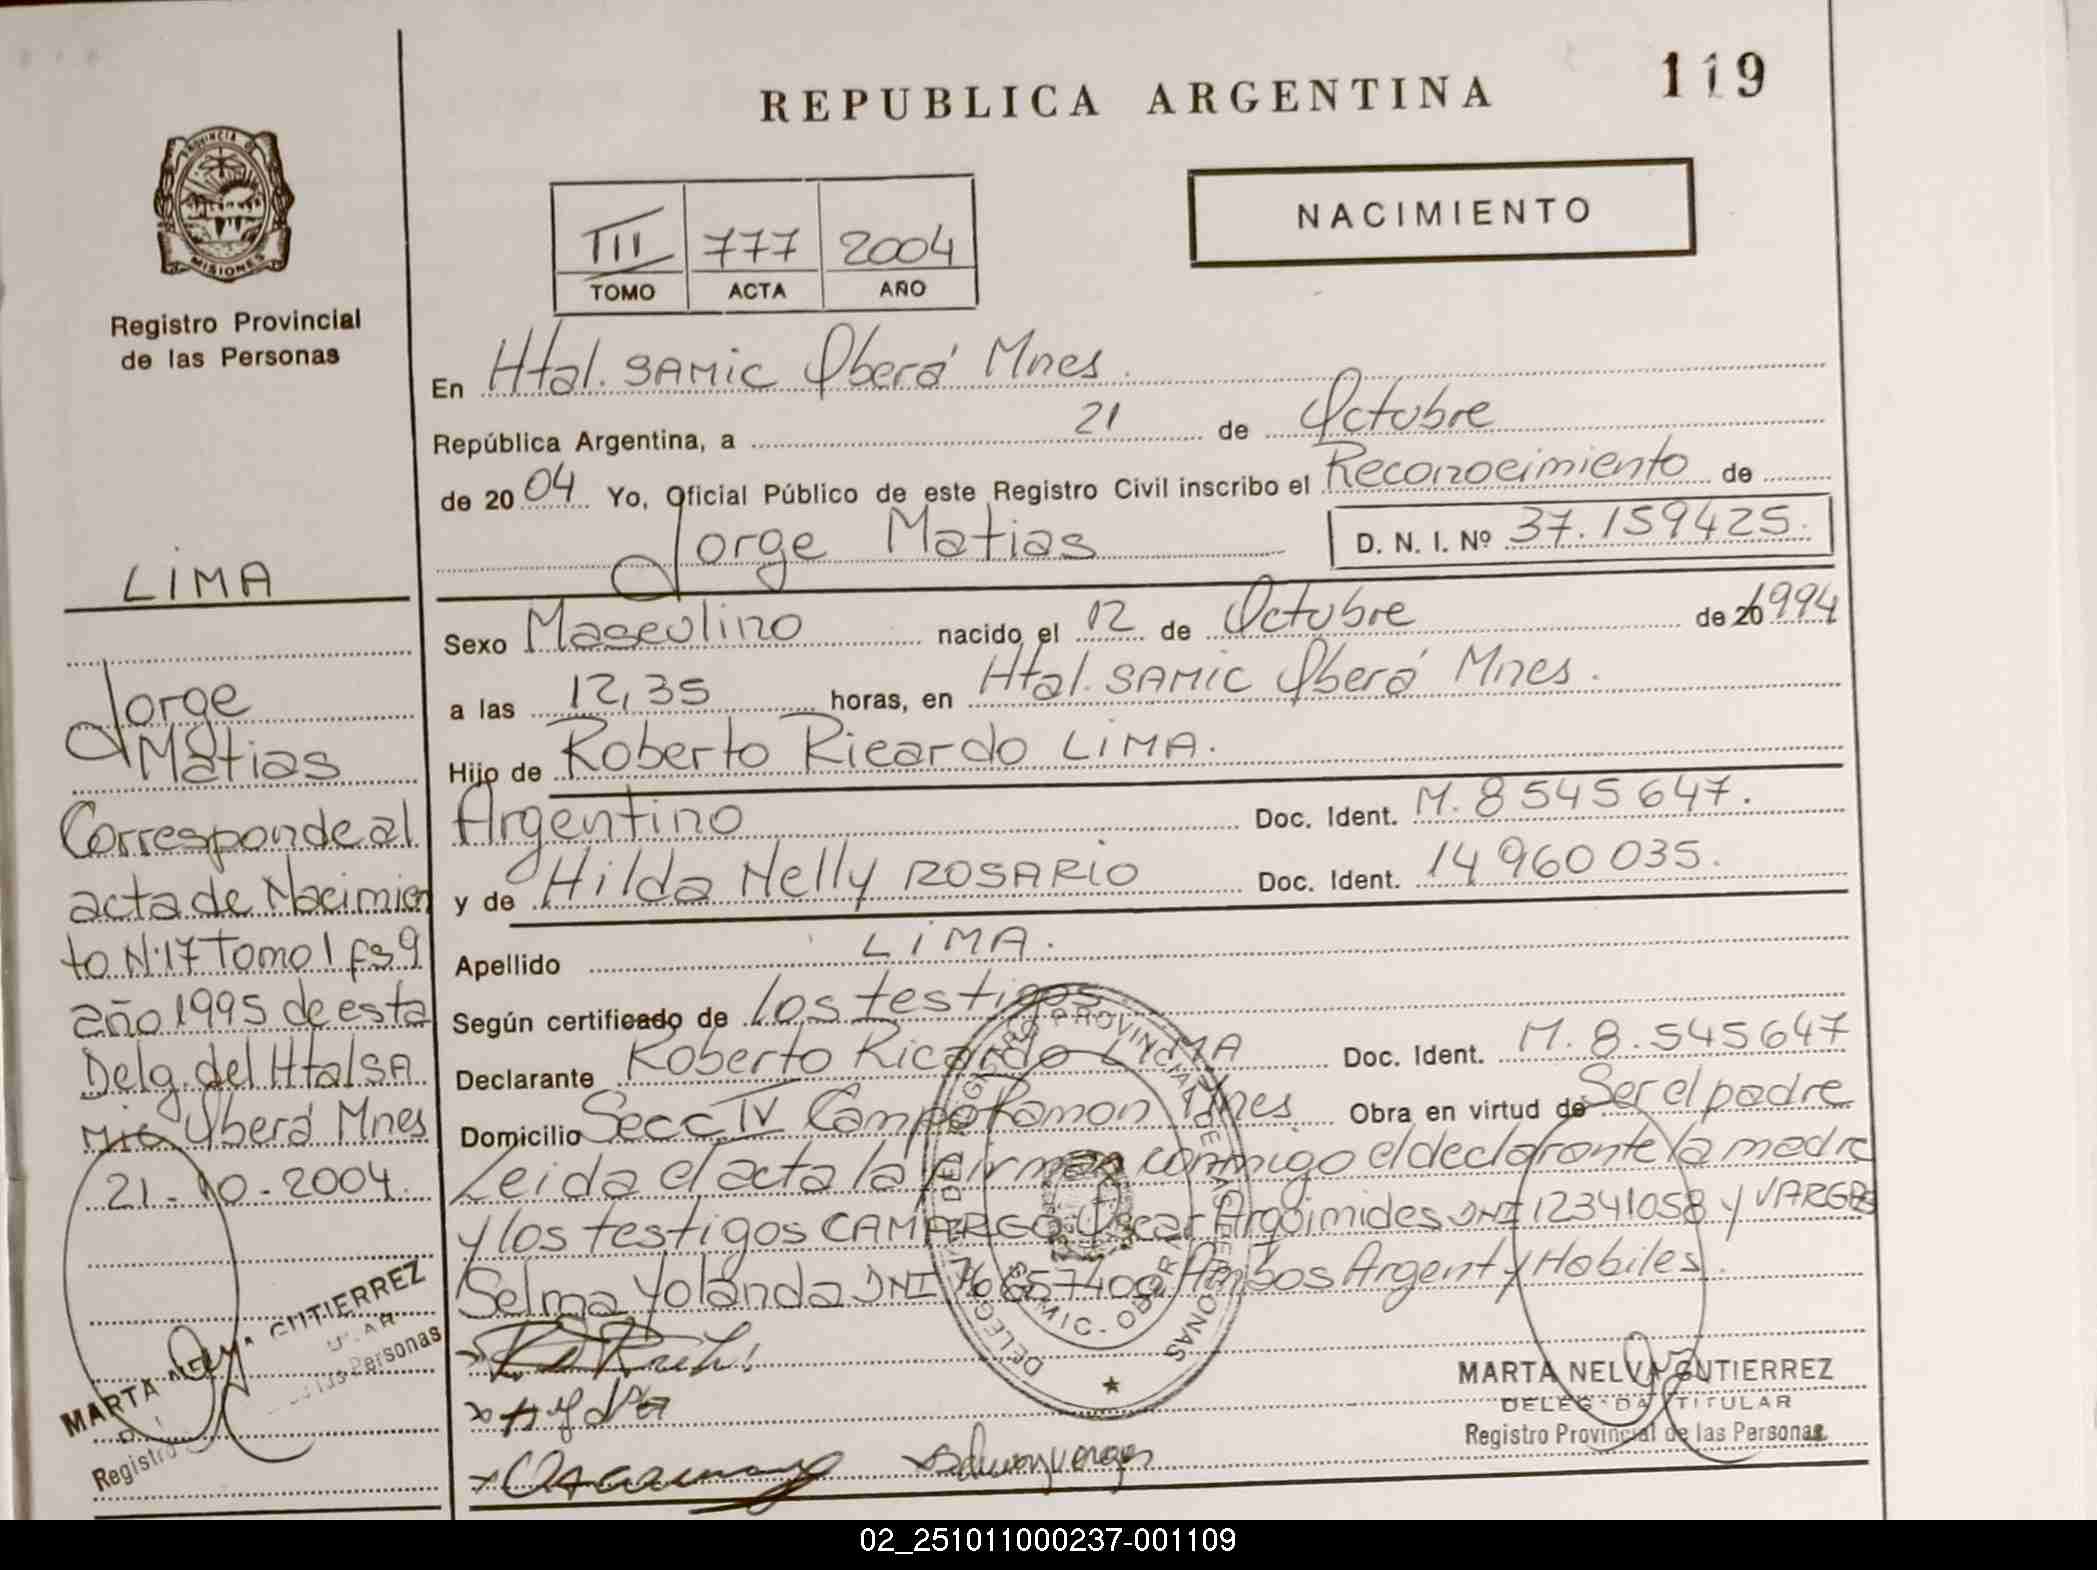 REPUBLICA ARGENTINA
119
PROVINCIA DE
MISIONES
Registro Provincial
de las Personas
NACIMIENTO
TIII 777 2004
TOMO ACTA AÑO
En Htal. SAMIC Oberá Mnes.
República Argentina, a 21 de Octubre
de 2004 Yo, Oficial Público de este Registro Civil inscribo el Reconocimiento de
Jorge Matias D. N. I. Nº 37.159425.
Sexo Masculino nacido el 12 de Octubre de 20 1994
a las 12,35 horas, en Htal. SAMIC Oberá Mnes.
Hijo de Roberto Ricardo LIMA.
Argentino Doc. Ident. M. 8545647.
y de Hilda Nelly ROSARIO Doc. Ident. 14960035.
Apellido LIMA.
Según certificado de los testigos
Declarante Roberto Ricardo LIMA Doc. Ident. M. 8.545647
Domicilio Secc IV Campo Ramon Mnes Obra en virtud de Ser el padre
Leida el acta la firman conmigo el declarante la madre
y los testigos CAMARGO Oscar Arqoimides DNI 12341058 y VARGAS
Selma Yolanda DNI Ambos Argent y Hobiles.
LIMA
Jorge
Matias
Corresponde al
acta de Nacimien
to N:17 Tomo I fs 9
año 1995 de esta
Delg. del Htal SA
MIC Oberá Mnes
21-10-2004.
MARTA NELVA GUTIERREZ
Registro de las Personas
DELEG REGISTRO PROVINCIAL DE LAS PERSONAS
SAMIC - OBERA
MARTA NELVA GUTIERREZ
DELEGADA TITULAR
Registro Provincial de las Personas
02_251011000237-001109